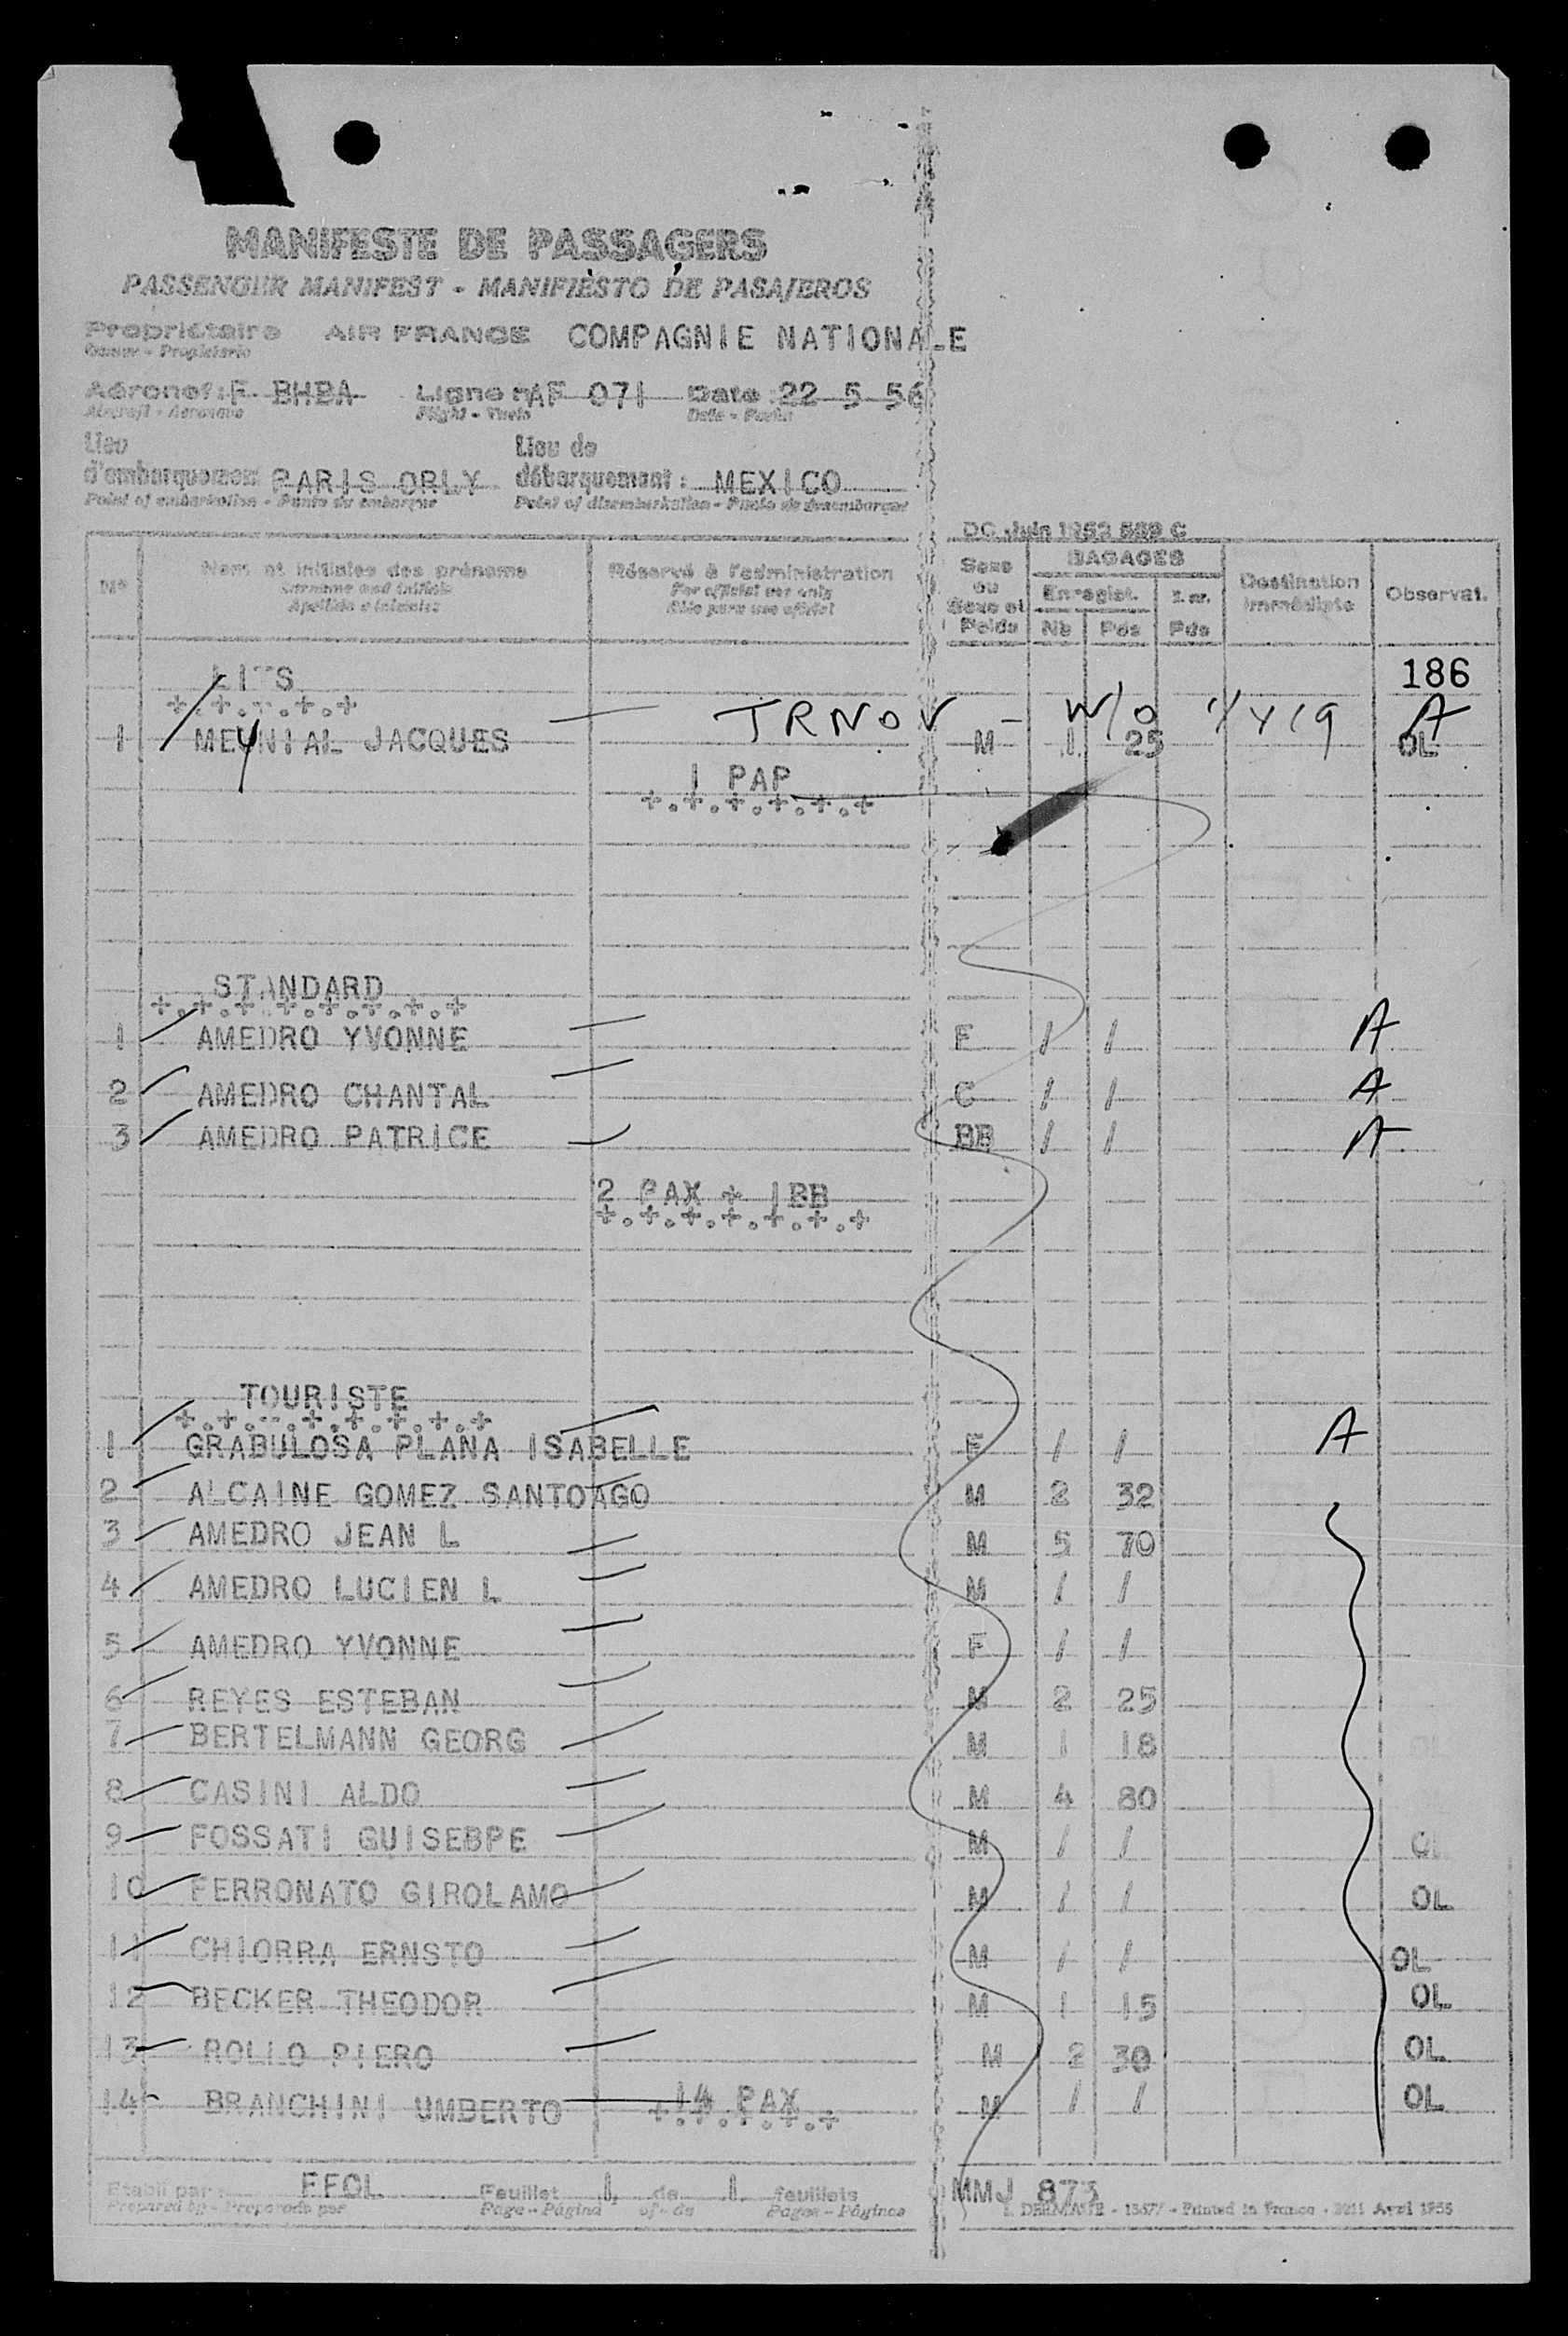 MANIFESTE DE PASSAGERS
PASSENGER MANIFEST - MANIFIESTO DE PASAJEROS
Propriétaire AIR FRANCE COMPAGNIE NATIONALE
Owner - Propietario
Aéronef: F- BHBA Ligne n° AF 071 Date: 22 5 56
Aircraft - Aeronave Flight - Vuelo Date - Fecha
Lieu Lieu de
d'embarquement PARIS ORLY débarquement: MEXICO
Point of embarkation - Punto de embarque Point of disembarkation - Punto de desembarque
DC Juin 1953 559 C
N° Nom et initiales des prénoms Réservé à l'administration Sexe ou Sexe et Poids BAGAGES Destination immédiate Observat.
Surname and initials For official use only Enregist.
Apellido e iniciales Sólo para uso oficial Nb Pds Pds
186
LITS
+.+.-.+.+
TRNOV - W/O A
1 MEYNIAL JACQUES M 1 25 OL
1 PAP
+.+.+.+.+.+
STANDARD
+.+.+.+.+.+.+.+
1 AMEDRO YVONNE F / / A
2 AMEDRO CHANTAL C / / A
3 AMEDRO PATRICE BB / / A
2 PAX + 1BB
+.+.+.+.+.+.+
TOURISTE
+.+.-.+.+.+.+.+
1 GRABULOSA PLANA ISABELLE F / / A
2 ALCAINE GOMEZ SANTOAGO M 2 32
3 AMEDRO JEAN L M 5 70
4 AMEDRO LUCIEN L M / /
5 AMEDRO YVONNE F / /
6 REYES ESTEBAN M 2 25
7 BERTELMANN GEORG M 1 18 OL
8 CASINI ALDO M 4 80
9 FOSSATI GUISEBPE M / / OL
10 FERRONATO GIROLAMO M / / OL
11 CHIORRA ERNSTO M / / OL
12 BECKER THEODOR M 1 15 OL
13 ROLLO PIERO M 2 30 OL
14 BRANCHINI UMBERTO 14 PAX M / / OL
+.+.+.+.+
Etabli par: FFGL Feuillet 1 de 1 feuillets MMJ 873
Prepared by - Preparado por Page - Página of - de Pages - Páginas - Printed in France - Avril 1955